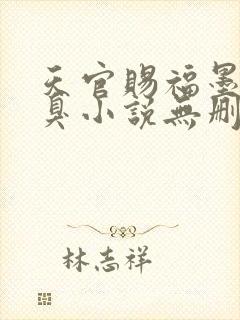 天官賜福墨
臭小説無刪
林志祥